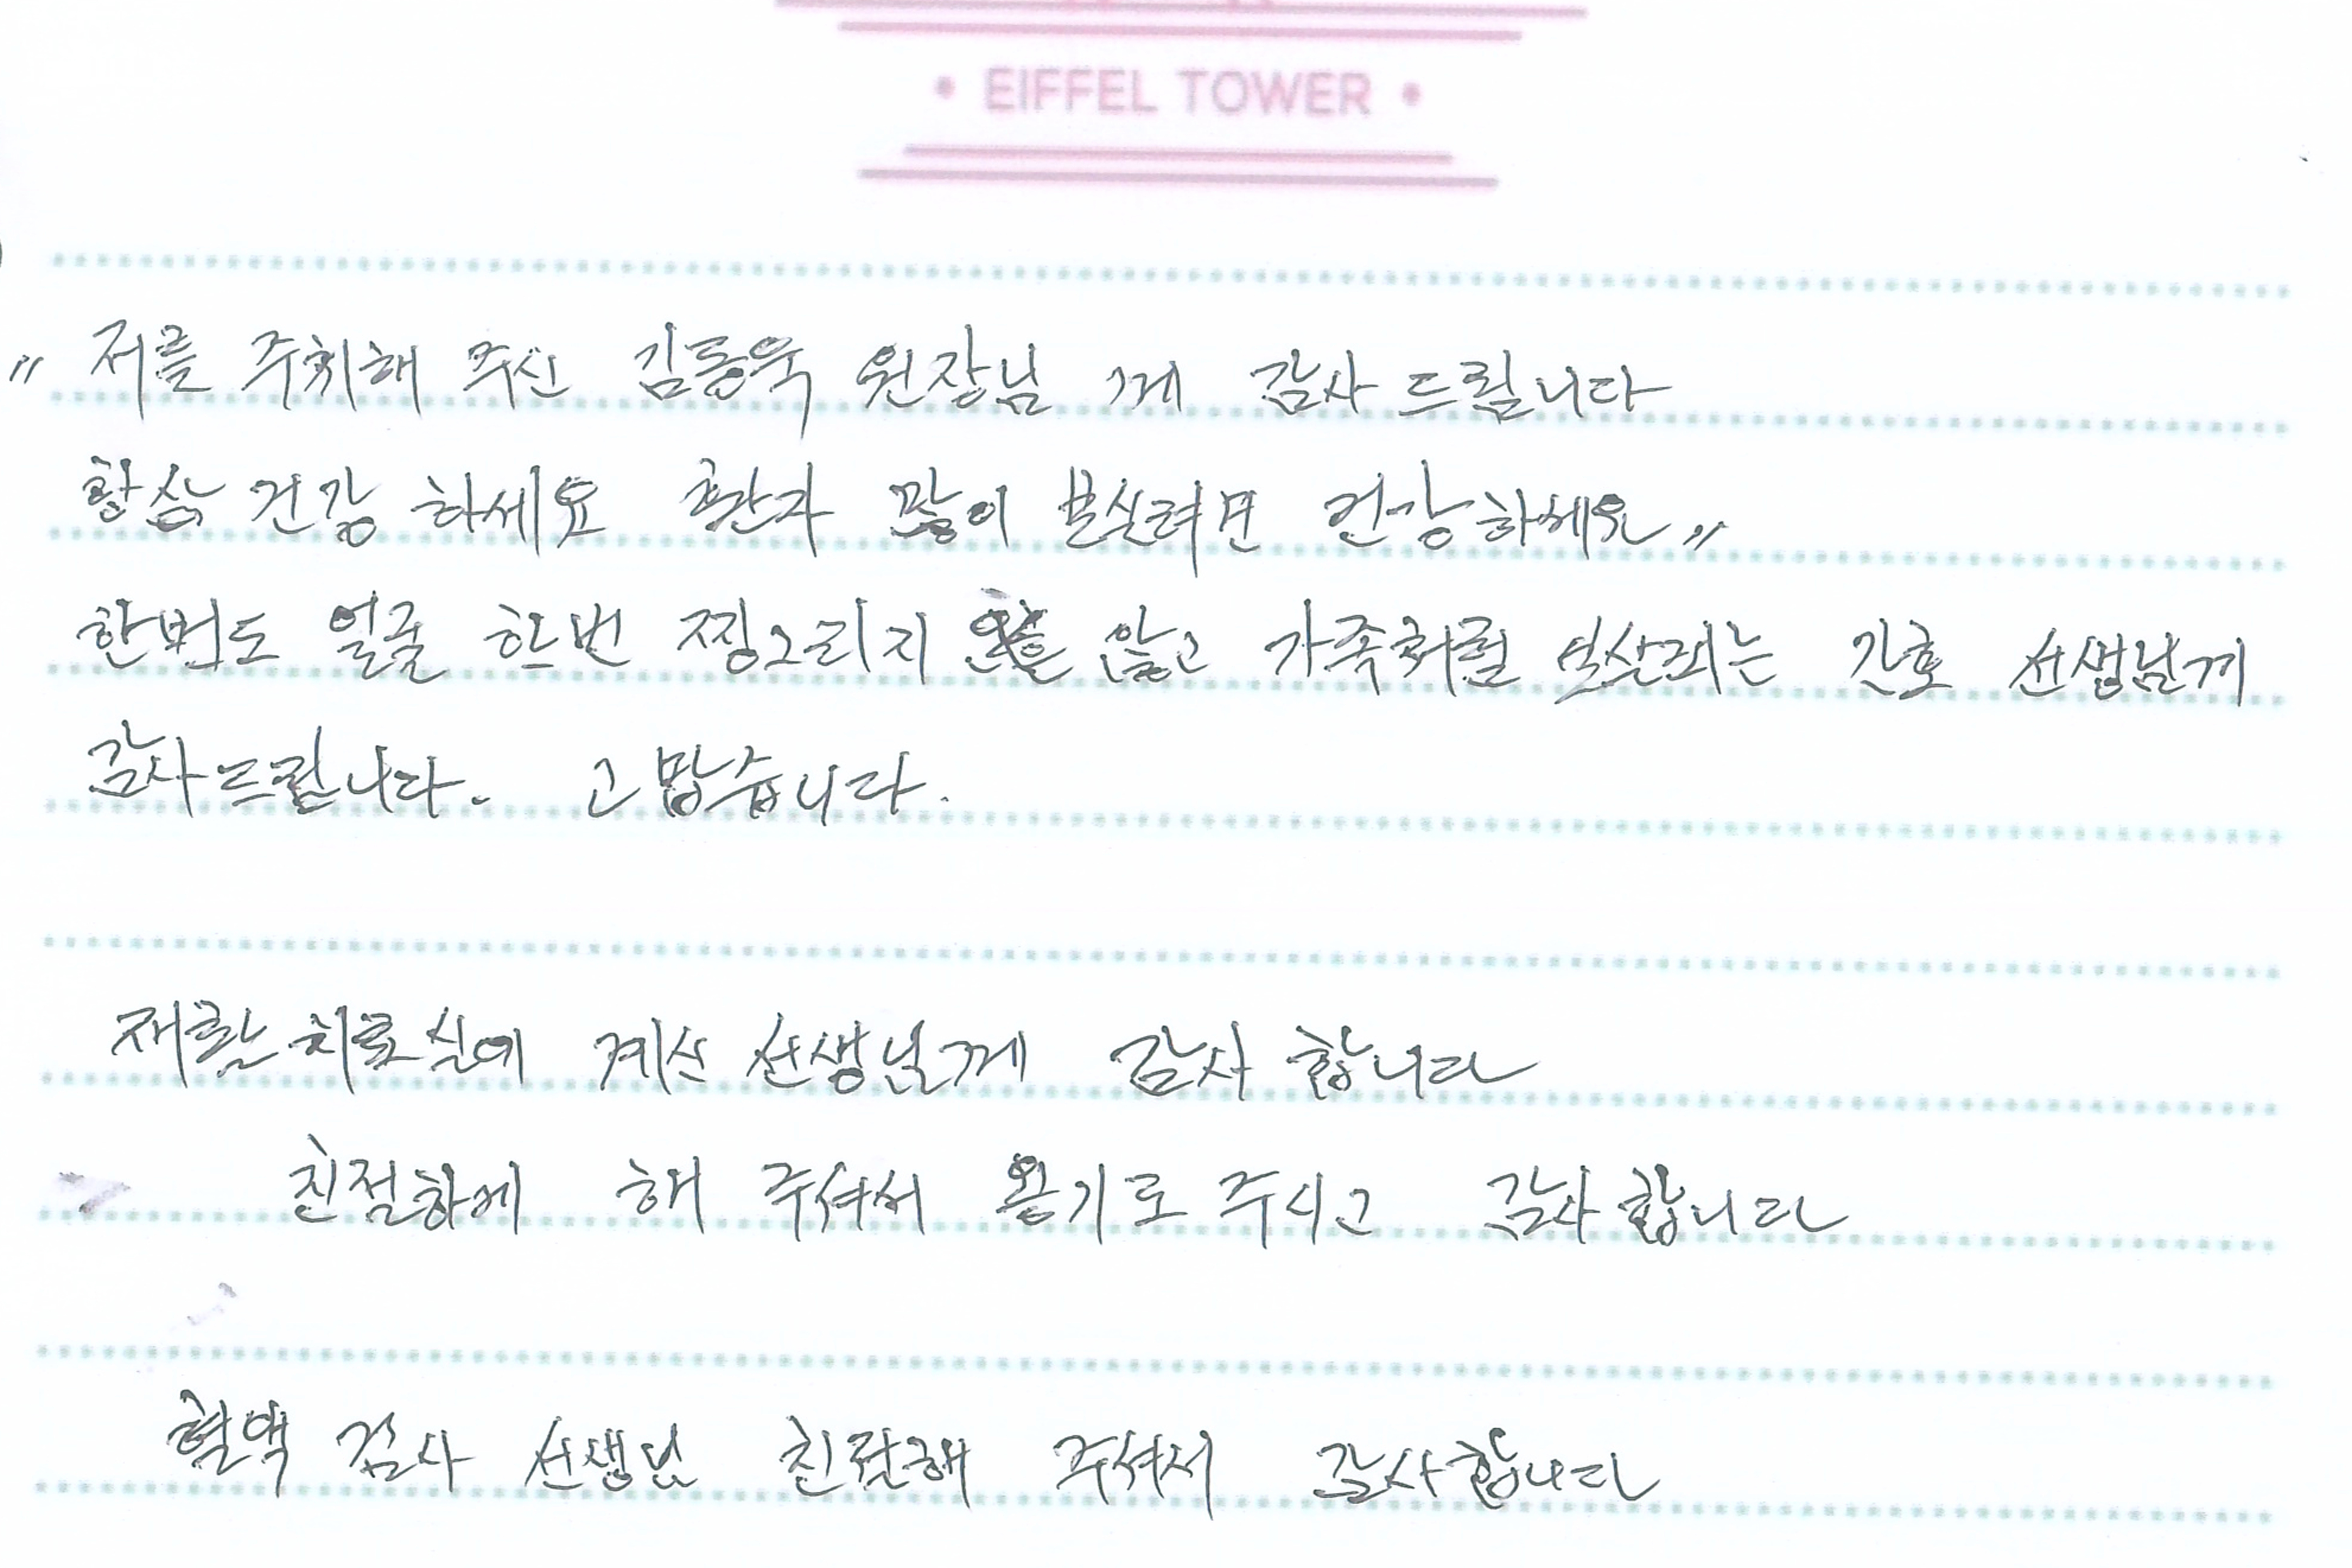 • EIFFEL TOWER •
" 저를 주치해 주신 김동욱 원장님 께 감사 드립니다
항상 건강 하세요 환자 많이 보실려면 건강하세요 "
한번도 얼굴 한번 찡그리지 않고 가족처럼 간호 선생님께
감사드립니다. 고맙습니다.
재활치료실에 계신 선생님께 감사 합니다
친절하게 해 주셔서 용기도 주시고 감사합니다
혈액 검사 선생님 친절해 주셔서 감사합니다